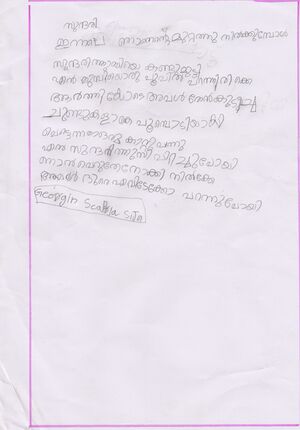 സുന്ദരി
ഇന്നലെ ഞാനെന്റെ മുറ്റത്തു നിൽക്കുമ്പോൾ
സുന്ദരിത്തുമ്പിയെ കണ്ടുമുട്ടി
എൻ മുമ്പിലൊരു പൂവിൽ പറന്നിരിക്കെ
ആർത്തിയോടെ അവൾ തേൻകുടിച്ചു
ചുണ്ടുകളാകെ പൂമ്പൊടിയായി
പെട്ടന്നങ്ങൊരു കാറ്റു വന്നു
എൻ സുന്ദരിത്തുമ്പി പോയി
ഞാൻ വെറുതെ നോക്കി നിൽക്കെ
അവൾ ദൂരെ എവിടേക്കോ പറന്നുപോയി
Georgin Scaria Sita